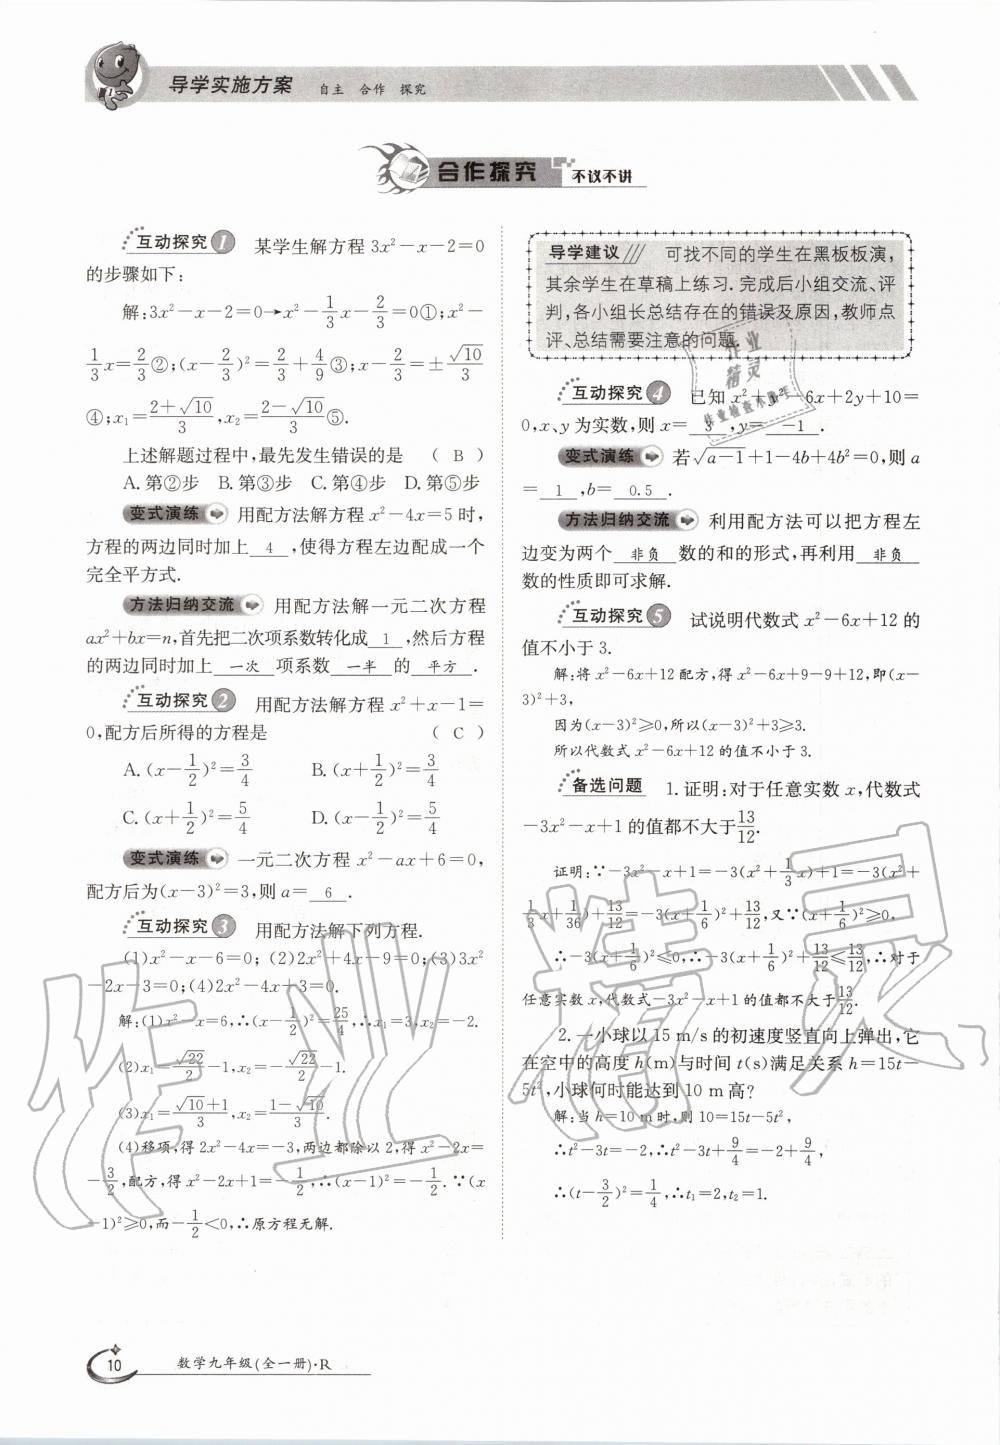 导学实施方案 自主 合作 探究
合作探究 不议不讲
互动探究1 某学生解方程 3x²-x-2=0
的步骤如下:
解:3x²-x-2=0→x²-1/3x-2/3=0①;x²-
1/3x=2/3②;(x-2/3)²=2/3+4/9③;x-2/3=±√10/3
④;x₁=(2+√10)/3,x₂=(2-√10)/3⑤.
上述解题过程中,最先发生错误的是 ( B )
A.第②步 B.第③步 C.第④步 D.第⑤步
变式演练 用配方法解方程 x²-4x=5 时,
方程的两边同时加上 4 ,使得方程左边配成一个
完全平方式.
方法归纳交流 用配方法解一元二次方程
ax²+bx=n,首先把二次项系数转化成 1 ,然后方程
的两边同时加上 一次 项系数 一半 的 平方 .
互动探究2 用配方法解方程 x²+x-1=
0,配方后所得的方程是 ( C )
A.(x-1/2)²=3/4 B.(x+1/2)²=3/4
C.(x+1/2)²=5/4 D.(x-1/2)²=5/4
变式演练 一元二次方程 x²-ax+6=0,
配方后为(x-3)²=3,则a= 6 .
互动探究3 用配方法解下列方程.
(1)x²-x-6=0;(2)2x²+4x-9=0;(3)3x²
-2x-3=0;(4)2x²-4x+3=0.
解:(1)x²-x=6,∴(x-1/2)²=25/4,∴x₁=3,x₂=-2.
(2)x₁=√22/2-1,x₂=-√22/2-1.
(3)x₁=(√10+1)/3,x₂=(1-√10)/3.
(4)移项,得2x²-4x=-3,两边都除以2,得x²-2x=
-3/2,配方,得x²-2x+1=-1/2,∴(x-1)²=-1/2.∵(x
-1)²≥0,而-1/2<0,∴原方程无解.
导学建议 可找不同的学生在黑板板演,
其余学生在草稿上练习.完成后小组交流、评
判,各小组长总结存在的错误及原因,教师点
评、总结需要注意的问题.
互动探究4 已知 x²+y²-6x+2y+10=
0,x、y为实数,则x= 3 ,y= -1 .
变式演练 若√a-1+1-4b+4b²=0,则a
= 1 ,b= 0.5 .
方法归纳交流 利用配方法可以把方程左
边变为两个 非负 数的和的形式,再利用 非负
数的性质即可求解.
互动探究5 试说明代数式 x²-6x+12 的
值不小于3.
解:将x²-6x+12配方,得x²-6x+9-9+12,即(x-
3)²+3,
因为(x-3)²≥0,所以(x-3)²+3≥3.
所以代数式 x²-6x+12 的值不小于3.
备选问题 1.证明:对于任意实数x,代数式
-3x²-x+1的值都不大于13/12.
证明:∵-3x²-x+1=-3(x²+1/3x)+1=-3(x²+
1/3x+1/36)+13/12=-3(x+1/6)²+13/12,又∵(x+1/6)²≥0,
∴-3(x+1/6)²≤0,∴-3(x+1/6)²+13/12≤13/12,∴对于
任意实数x,代数式-3x²-x+1的值都不大于13/12.
2.一小球以15 m/s的初速度竖直向上弹出,它
在空中的高度h(m)与时间t(s)满足关系h=15t-
5t²,小球何时能达到10 m高?
解:当h=10 m时,则10=15t-5t²,
∴t²-3t=-2,∴t²-3t+9/4=-2+9/4,
∴(t-3/2)²=1/4,∴t₁=2,t₂=1.
作业精灵
作业
精灵
作业检查小助手
10 数学九年级(全一册)·R